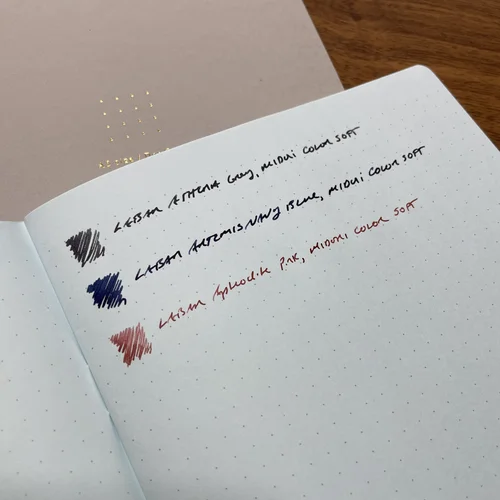 LABAN ATHENA Gray, MIDORI COLOR SOFT
LABAN ARTEMIS NAVY BLUE, MIDORI COLOR SOFT
LABAN Aphrodite Pink, MIDORI COLOR SOFT